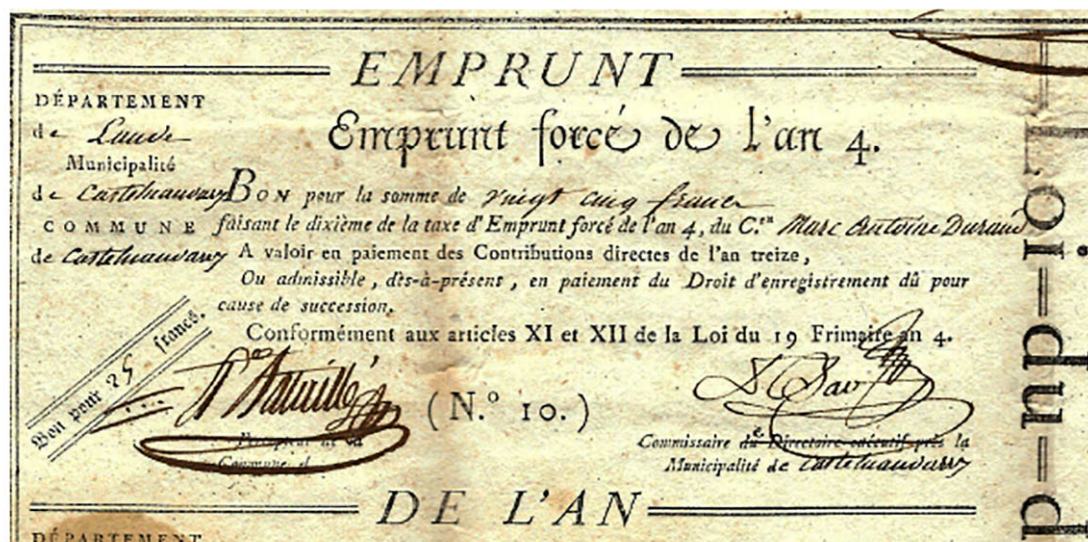 EMPRUNT
Emprunt forcé de l'an 4.
DÉPARTEMENT
de Laude
Municipalité
de Castelnaudary
COMMUNE
de Castelnaudary
BON pour la somme de vingt cinq francs
faisant le dixième de la taxe d'Emprunt forcé de l'an 4, du C.en Marc Antoine Durand
A valoir en paiement des Contributions directes de l'an treize,
Ou admissible, dès-à-présent, en paiement du Droit d'enregistrement dû pour
cause de succession.
Conformément aux articles XI et XII de la Loi du 19 Frimaire an 4.
Bon pour 25 francs.
(N.° 10.)
Percepteur de la
Commune d
Commissaire du Directoire exécutif près la
Municipalité de Castelnaudary
DE L'AN
DÉPARTEMENT
Loi-du-